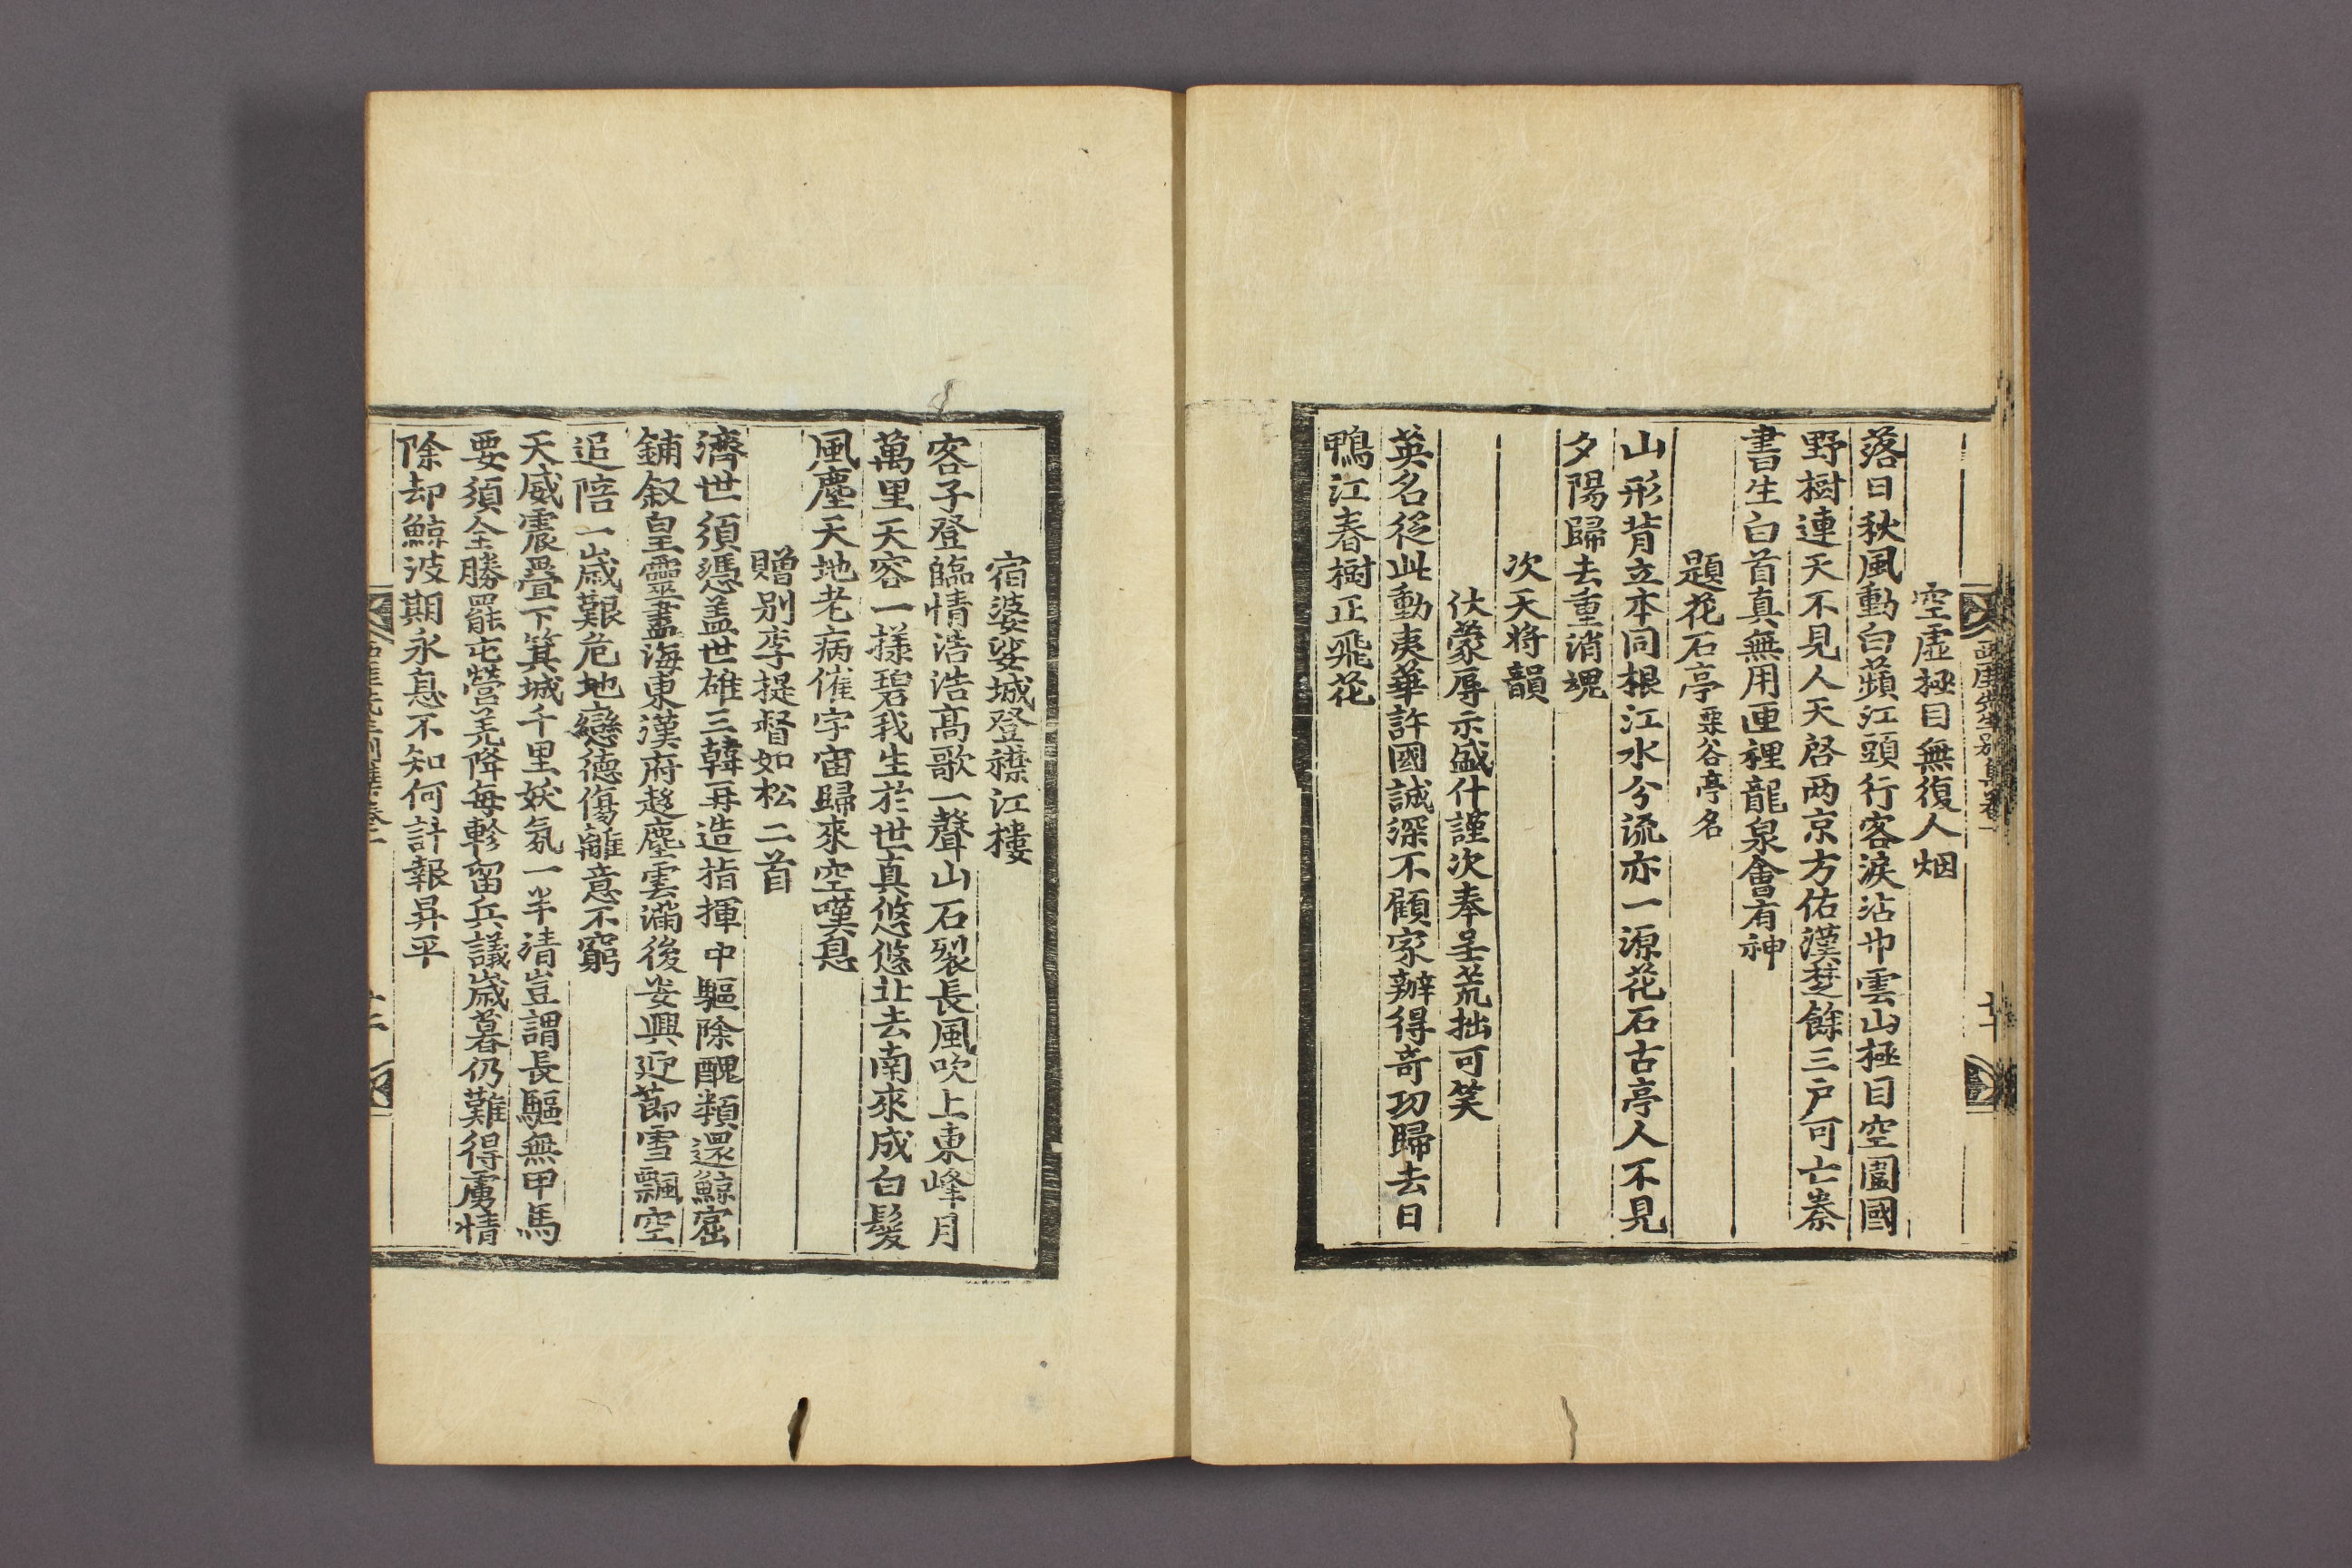 空虛極目無復人烟
落日秋風動白蘋江頭行客淚沾巾雲山極目空闔國
野樹連天不見人天啓两京方佑漢楚餘三戶可亡秦
書生白首真無用匣裡龍泉會有神
題花石亭 栗谷亭名
山形背立本同根江水分流亦一源花石古亭人不見
夕陽歸去重消魂
次天將韻
伏蒙辱示盛什謹次奉呈荒拙可笑
英名從此動夷華許國誠深不顧家辦得奇功歸去日
鴨江春樹正飛花
宿婆娑城登襟江樓
客子登臨情浩浩高歌一聲山石裂長風吹上東峰月
萬里天容一㨾碧我生於世真悠悠北去南來成白髮
風塵天地老病催宇宙歸來空嘆息
贈別李提督如松二首
濟世須憑盖世雄三韓再造指揮中驅除醜類還鯨窟
鋪叙皇靈盡海東漢府趍塵雲滿後安興迎節雪飄空
追陪一歲艱危地戀德傷離意不窮
天威震疊下箕城千里妖氛一半清豈謂長驅無甲馬
要須全勝罷屯營羌降每軫留兵議歲暮仍難得虜情
除却鯨波期永息不知何計報昇平